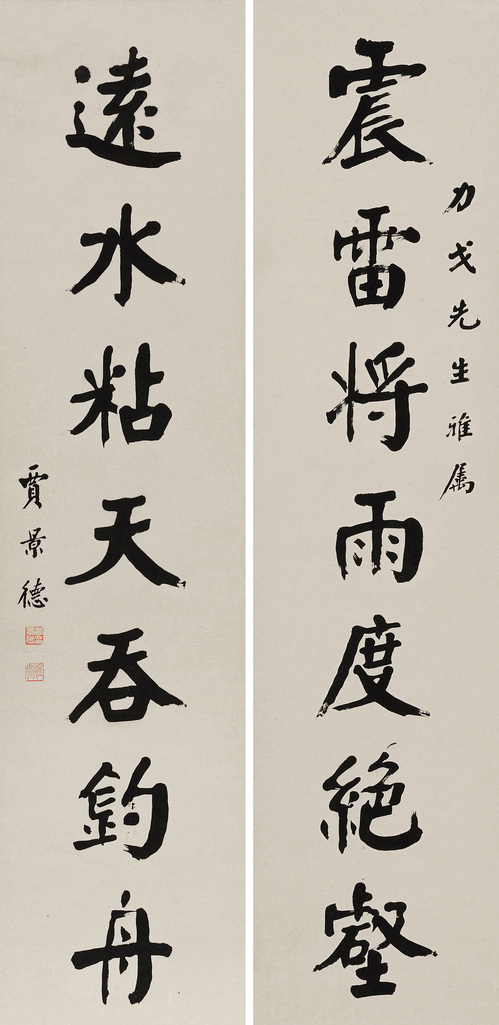 力戈先生雅属
震雷将雨度絕壑
遠水粘天吞釣舟
賈景德